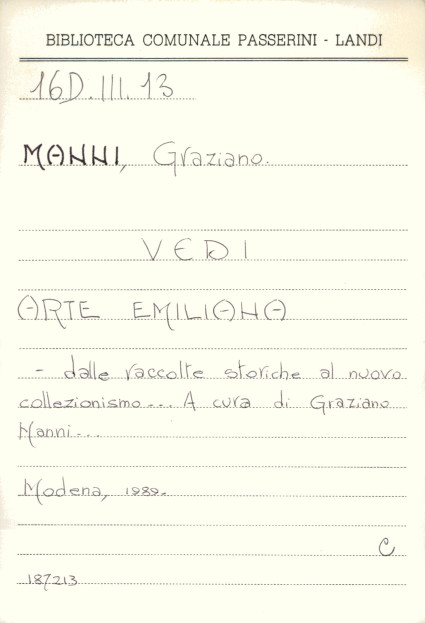 BIBLIOTECA COMUNALE PASSERINI - LANDI
16D.III.13
MANNI, Graziano.
VEDI
ARTE EMILIANA
- dalle raccolte storiche al nuovo
collezionismo... A cura di Graziano
Manni...
Modena, 1989.
C
187213